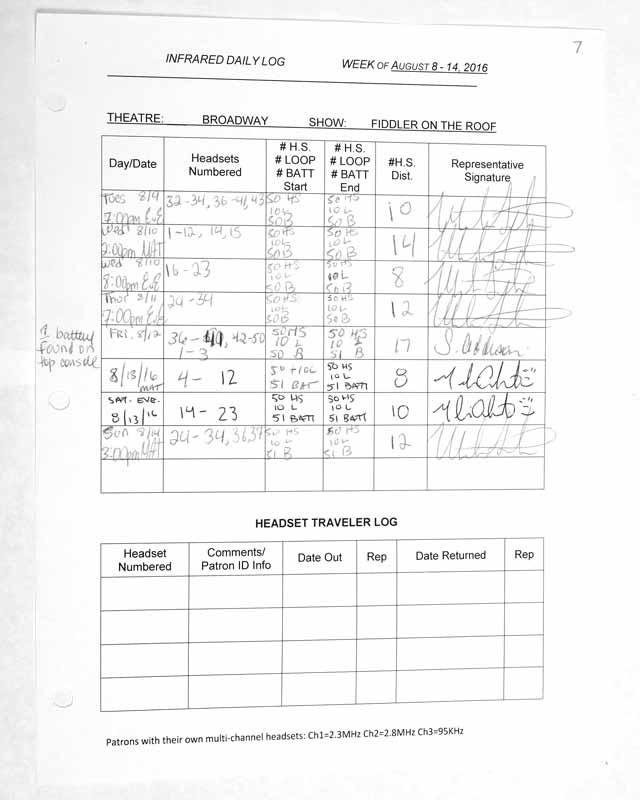 7
INFRARED DAILY LOG WEEK OF AUGUST 8 - 14, 2016
THEATRE: BROADWAY SHOW: FIDDLER ON THE ROOF
Day/Date Headsets Numbered # H.S. # LOOP # BATT Start # H.S. # LOOP # BATT End #H.S. Dist. Representative Signature
Tues 8/9 7:00pm EVE 32-34, 36-41, 43 50 HS 10 L 50 B 50 HS 10 L 50 B 10
Wed 8/10 2:00pm MAT 1-12, 14, 15 50 HS 10 L 50 B 50 HS 10 L 50 B 14
Wed 8/10 8:00pm EVE 16-23 50 HS 10 L 50 B 50 HS 10 L 50 B 8
Thur 8/11 7:00pm EVE 24-34 50 HS 10 L 50 B 50 HS 10 L 50 B 12
1 battery found on top console
FRI. 8/12 36-40, 42-50 1-3 50 HS 10 L 50 B 50 HS 10 L 51 B 17 S.
8/13/16 MAT 4 - 12 50 + 10L 51 BAT 50 HS 10 L 51 BATT 8
SAT. EVE. 8/13/16 14 - 23 50 HS 10 L 51 BATT 50 HS 10 L 51 BATT 10
Sun 8/14 3:00pm MAT 24-34, 36, 37 50 HS 10 L 51 B 50 HS 10 L 51 B 12
HEADSET TRAVELER LOG
Headset Numbered Comments/ Patron ID Info Date Out Rep Date Returned Rep
Patrons with their own multi-channel headsets: Ch1=2.3MHz Ch2=2.8MHz Ch3=95KHz